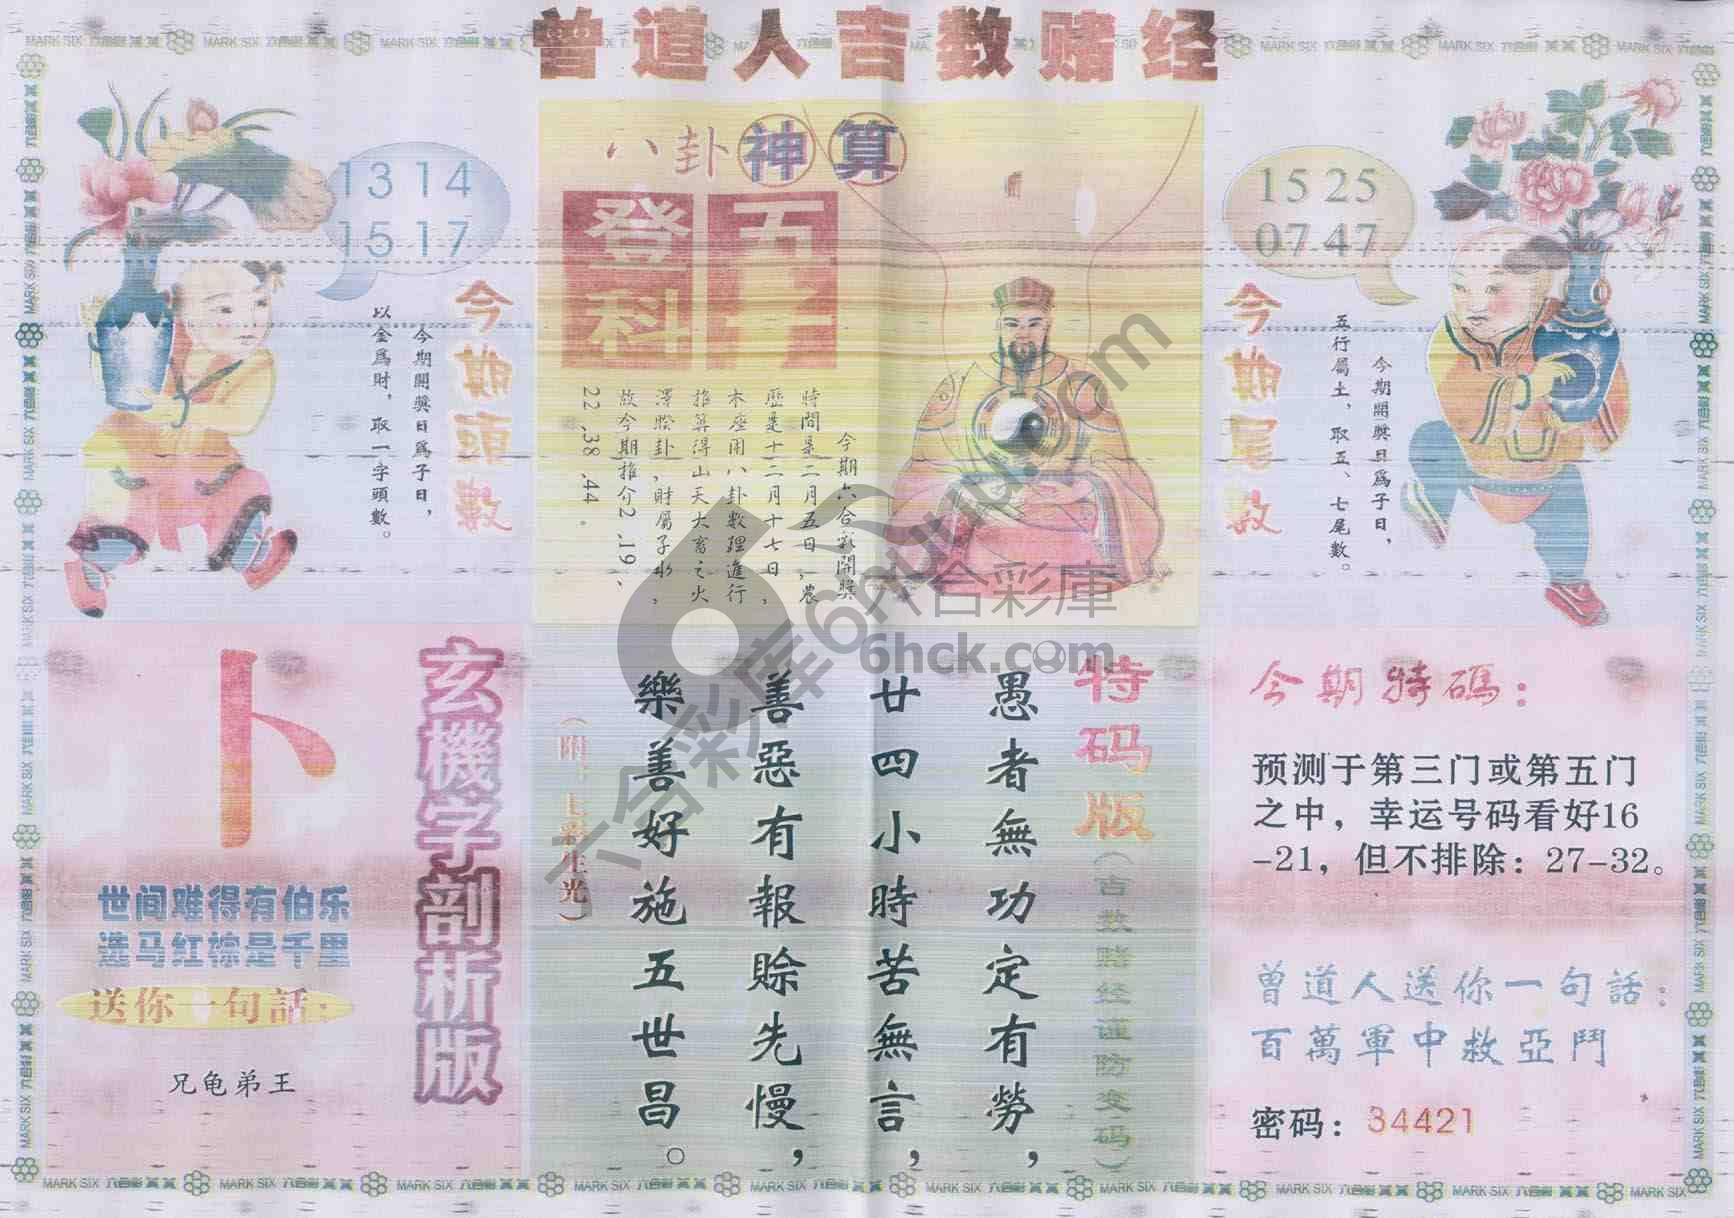 曾道人吉数赌经
13 14
15 17
今期頭數
今期開獎日爲子日，
以金爲財，取一字頭數。
八卦神算
五十
登科
今期六合彩開獎
時間是二月五日，農
歷是十二月十七日，
本座用八卦數理進行
推算得山天大畜之火
澤睽卦，財屬子水，
故今期推介2.19、
22.38.44
15 25
07 47
今期尾數
今期開獎日爲子日，
五行屬土，取五、七尾數。
六合彩庫
6hck.com
玄機字剖析版
卜
世间难得有伯乐
选马红棕是千里
送你一句話：
兄龟弟王
特码版（古数赌经谨防变码）
愚者無功定有勞，
廿四小時苦無言，
善惡有報賒先慢，
樂善好施五世昌。
今期特碼：
预测于第三门或第五门
之中，幸运号码看好16
-21，但不排除：27-32。
曾道人送你一句話：
百萬軍中救亞鬥
密码：34421
MARK SIX 六合彩